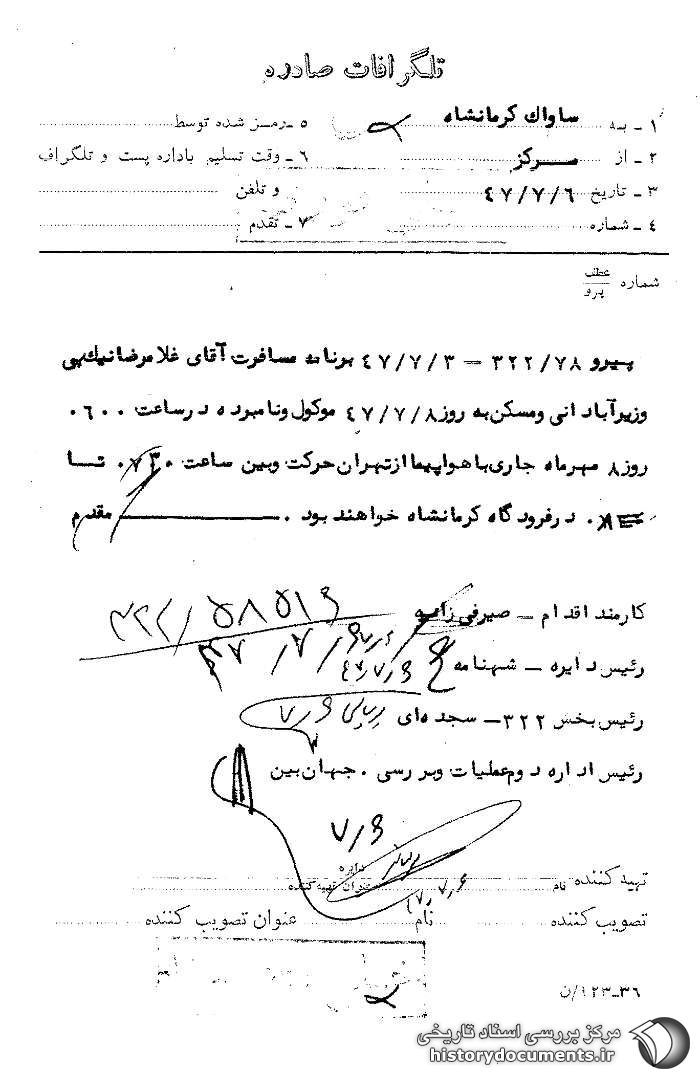 تلگرافات صادره
۱ - به ساواک کرمانشاه
۲ - از مرکز
۳ - تاریخ ۴۷/۷/۶
۴ - شماره
۵ - رمز شده توسط
۶ - وقت تسلیم باداره پست و تلگراف
و تلفن
۷ - تقدم
شماره عطف پیرو
پیرو ۳۲۲/۷۸ – ۴۷/۷/۳ برنامه مسافرت آقای غلامرضانیک پی
وزیرآبادانی ومسکن به روز ۴۷/۷/۸ موکول ونامبرده درساعت ۰۶۰۰
روز ۸ مهرماه جاری با هواپیما ازتهران حرکت وبین ساعت ۰۷۳۰ تا
درفرودگاه کرمانشاه خواهند بود . مقدم
کارمند اقدام – صیرفی زاده
۳۲۲/۵۸۵۱۶
۴۷/۷/۶
رئیس دایره – شهنامه
۴۷٫۷٫۶
رئیس بخش ۳۲۲ – سجده ای
۷٫۶
رئیس اداره دوم عملیات وبررسی . جهان بین
۷٫۶
دایره
تهیه کننده نام عنوان تهیه کننده
۴۷٫۷٫۶
تصویب کننده نام عنوان تصویب کننده
۳۶-۱۲۳/ن
مرکز بررسی اسناد تاریخی
historydocuments.ir